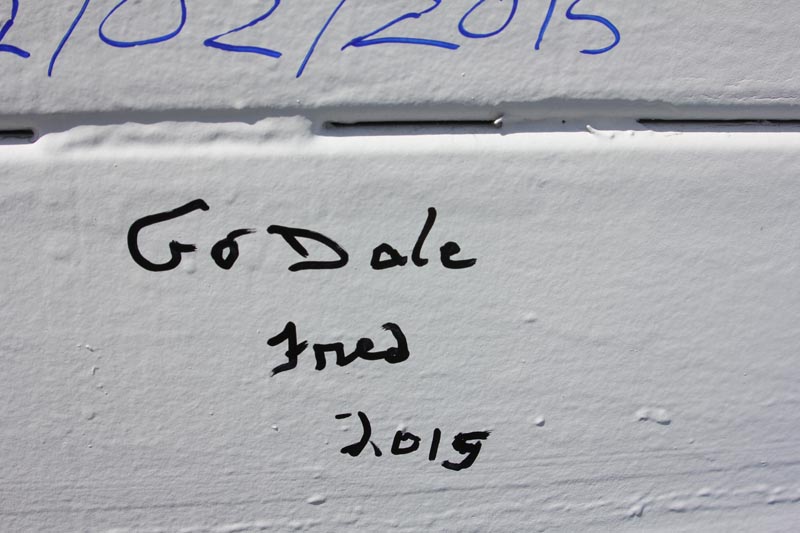 2/02/2015
Go Dale
Fred
2015